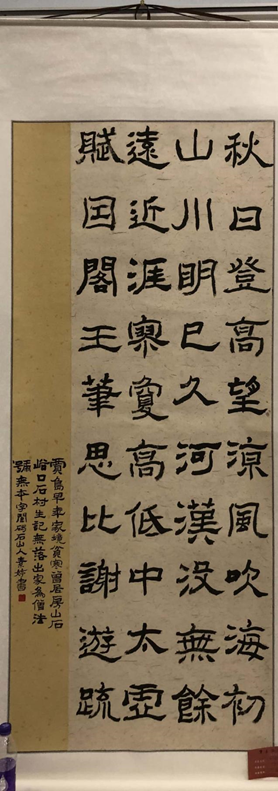 秋日登高望涼風吹海初
山川明已久河漢没無餘
遠近涯寥夐高低中太虛
賦囙閣王筆思比謝遊疏
賈島早年家境貧寒曾居房山石
峪口石村生記無落出家為僧法
號無本字閬碣石山人